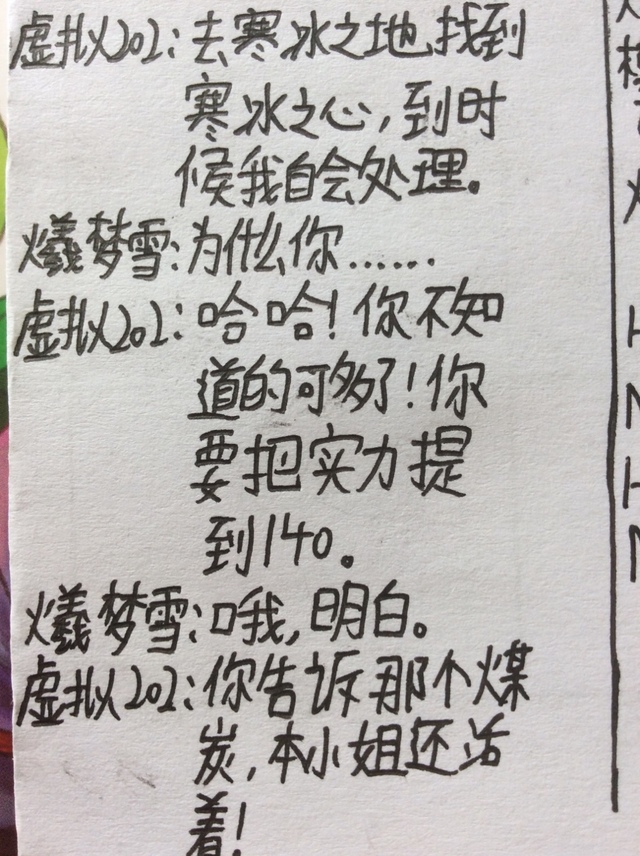 虚拟202:去寒冰之地找到
寒冰之心,到时
候我自会处理。
爔梦雪:为什么你……
虚拟202:哈哈!你不知
道的可多了!你
要把实力提
到140。
爔梦雪:哦,明白。
虚拟202:你告诉那个煤
炭,本小姐还活
着!
H
N
H
N